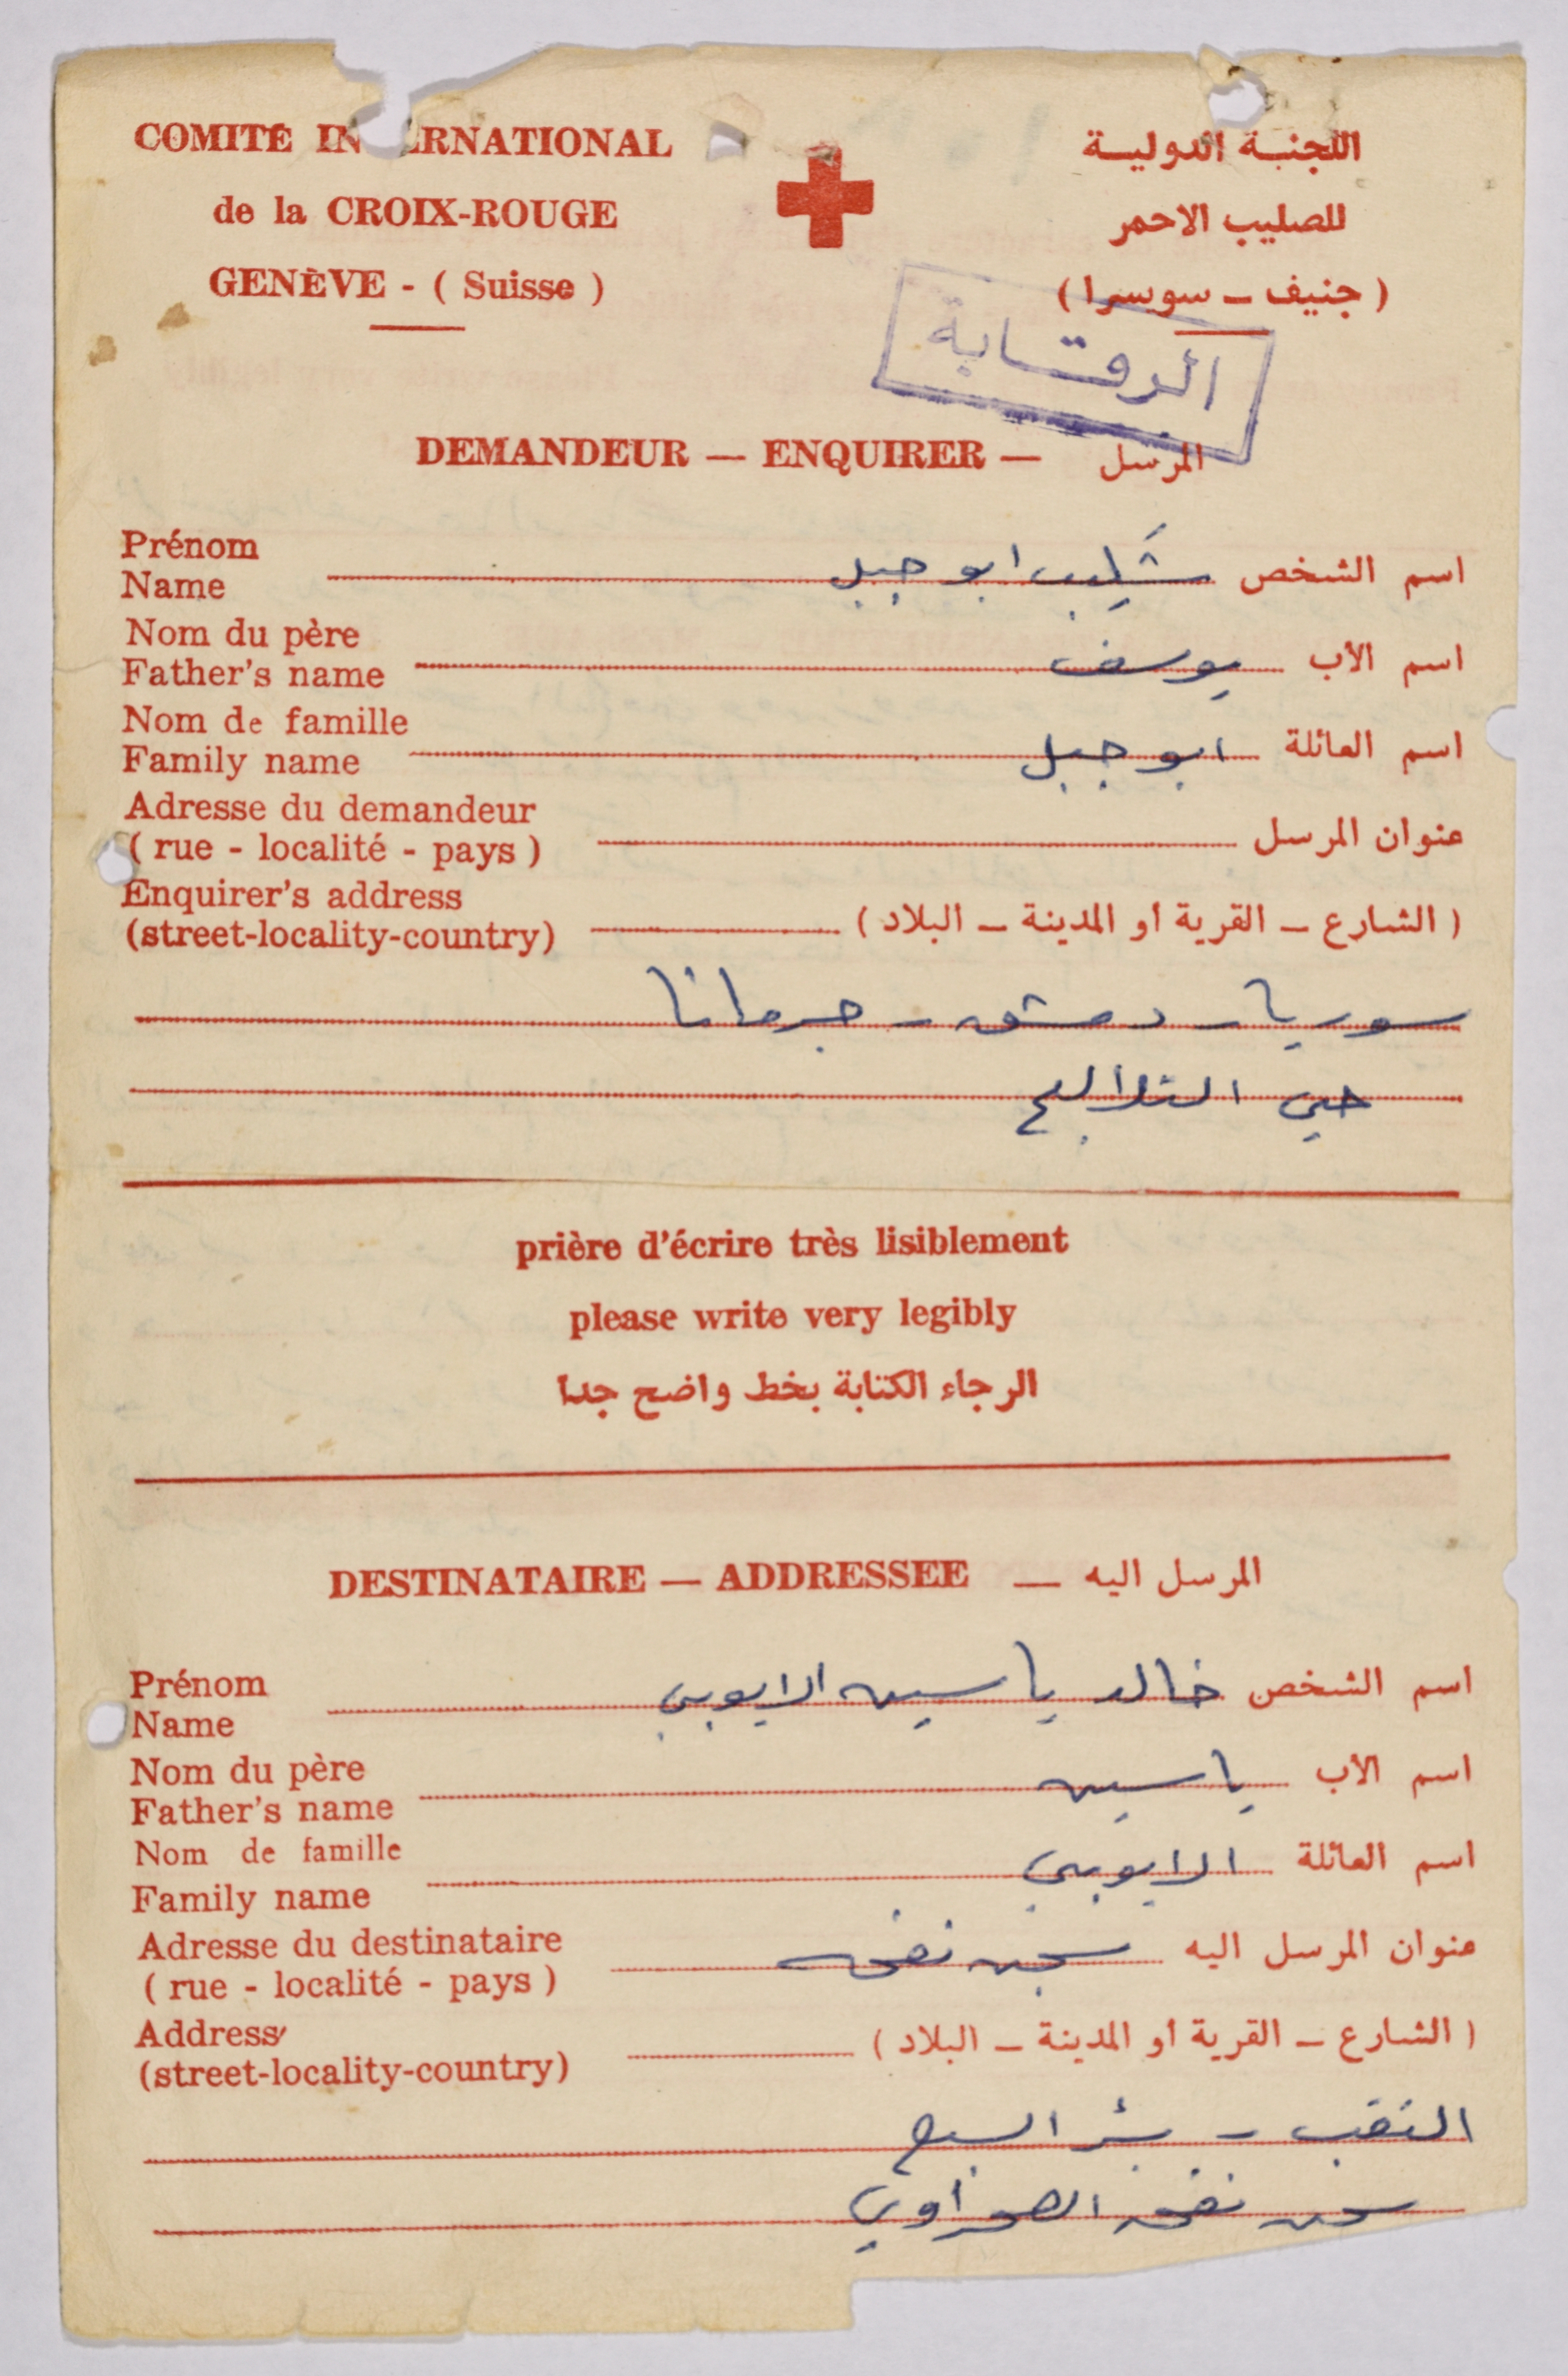 COMITÉ IN ERNATIONAL
اللجنة الدولية
de la CROIX-ROUGE
للصليب الاحمر
GENÈVE - ( Suisse )
( جنيف ـ سوسرا )
الرقابة
DEMANDEUR — ENQUIRER — المرسل
Prénom
Name
اسم الشخص شكيب ابو جبل
Nom du père
Father's name
اسم الأب يوسف
Nom de famille
Family name
اسم العائلة ابو جبل
Adresse du demandeur
( rue - localité - pays )
عنوان المرسل
Enquirer's address
(street-locality-country)
( الشارع ـ القرية أو المدينة ـ البلاد )
سوريا - دمشق - جرمانا
حي
prière d'écrire très lisiblement
please write very legibly
الرجاء الكتابة بخط واضح جدا
DESTINATAIRE — ADDRESSEE — المرسل اليه
Prénom
Name
اسم الشخص خالد ياسين الايوبي
Nom du père
Father's name
اسم الأب ياسين
Nom de famille
Family name
اسم العائلة الايوبي
Adresse du destinataire
( rue - localité - pays )
عنوان المرسل اليه سجن نفحه
Address
(street-locality-country)
( الشارع ـ القرية أو المدينة ـ البلاد )
النقب - بئر السبع
سجن نفحه الصحراوي